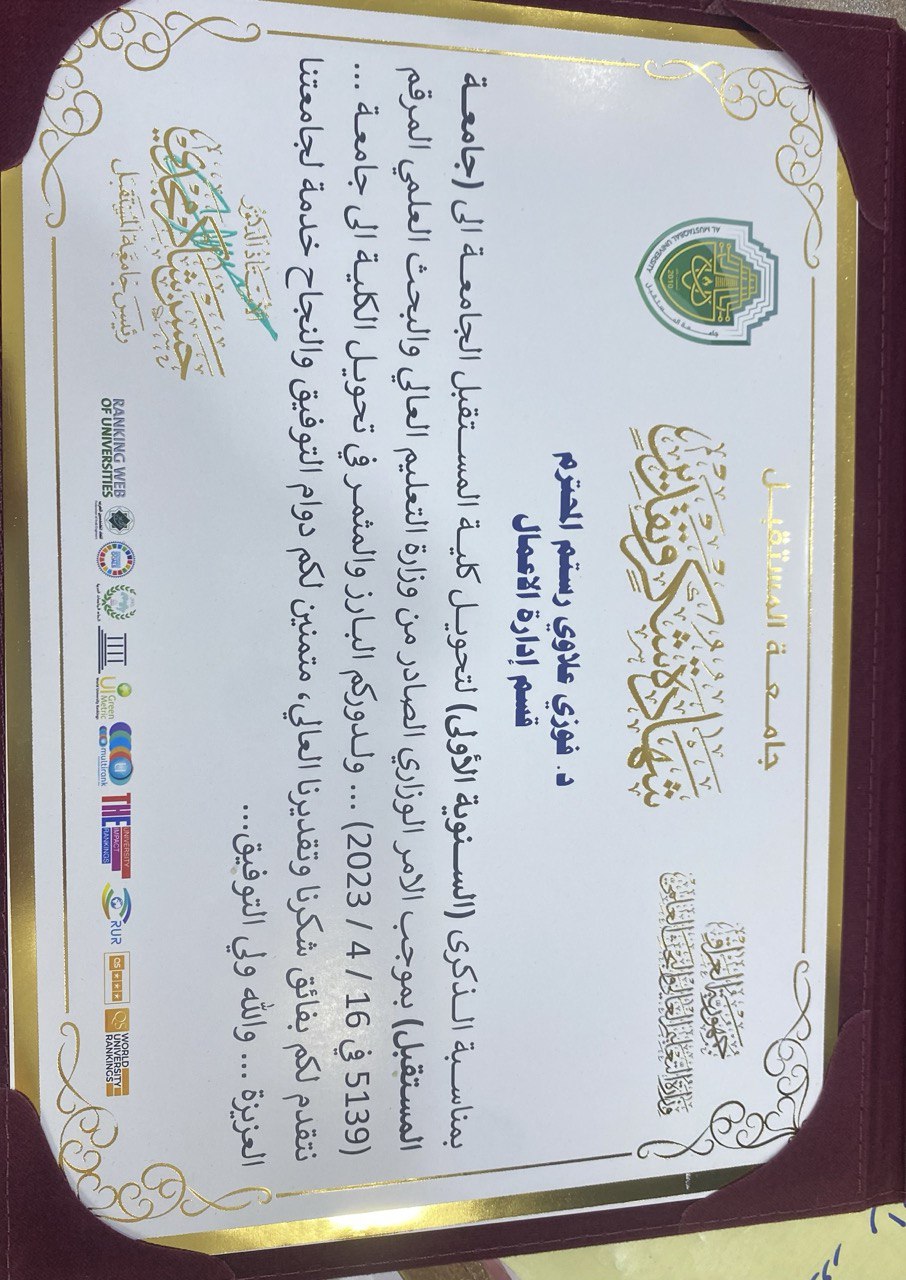 جمهورية العراق
وزارة التعليم العالي والبحث العلمي
جامعة المستقبل
AL MUSTAQBAL UNIVERSITY
2010
جامعة المستقبل
شهادة شكر وتقدير
د. فوزي علاوي رستم المحترم
قسم إدارة الاعمال
بمناسبة الذكرى (السنوية الأولى) لتحويل كلية المستقبل الجامعة الى (جامعة
المستقبل) بموجب الامر الوزاري الصادر من وزارة التعليم العالي والبحث العلمي المرقم
(5139 في 16 / 4 / 2023) ... ولدوركم البارز والمثمر في تحويل الكلية الى جامعة ...
نتقدم لكم بفائق شكرنا وتقديرنا العالي، متمنين لكم دوام التوفيق والنجاح خدمة لجامعتنا
العزيزة ... والله ولي التوفيق...
الأستاذ الدكتور
حسن شاكر مجدي
رئيس جامعة المستقبل
RANKING WEB
OF UNIVERSITIES
UI
Green
Metric
U
multirank
THE
UNIVERSITY
IMPACT
RANKINGS
RUR
QS
QS
WORLD
UNIVERSITY
RANKINGS